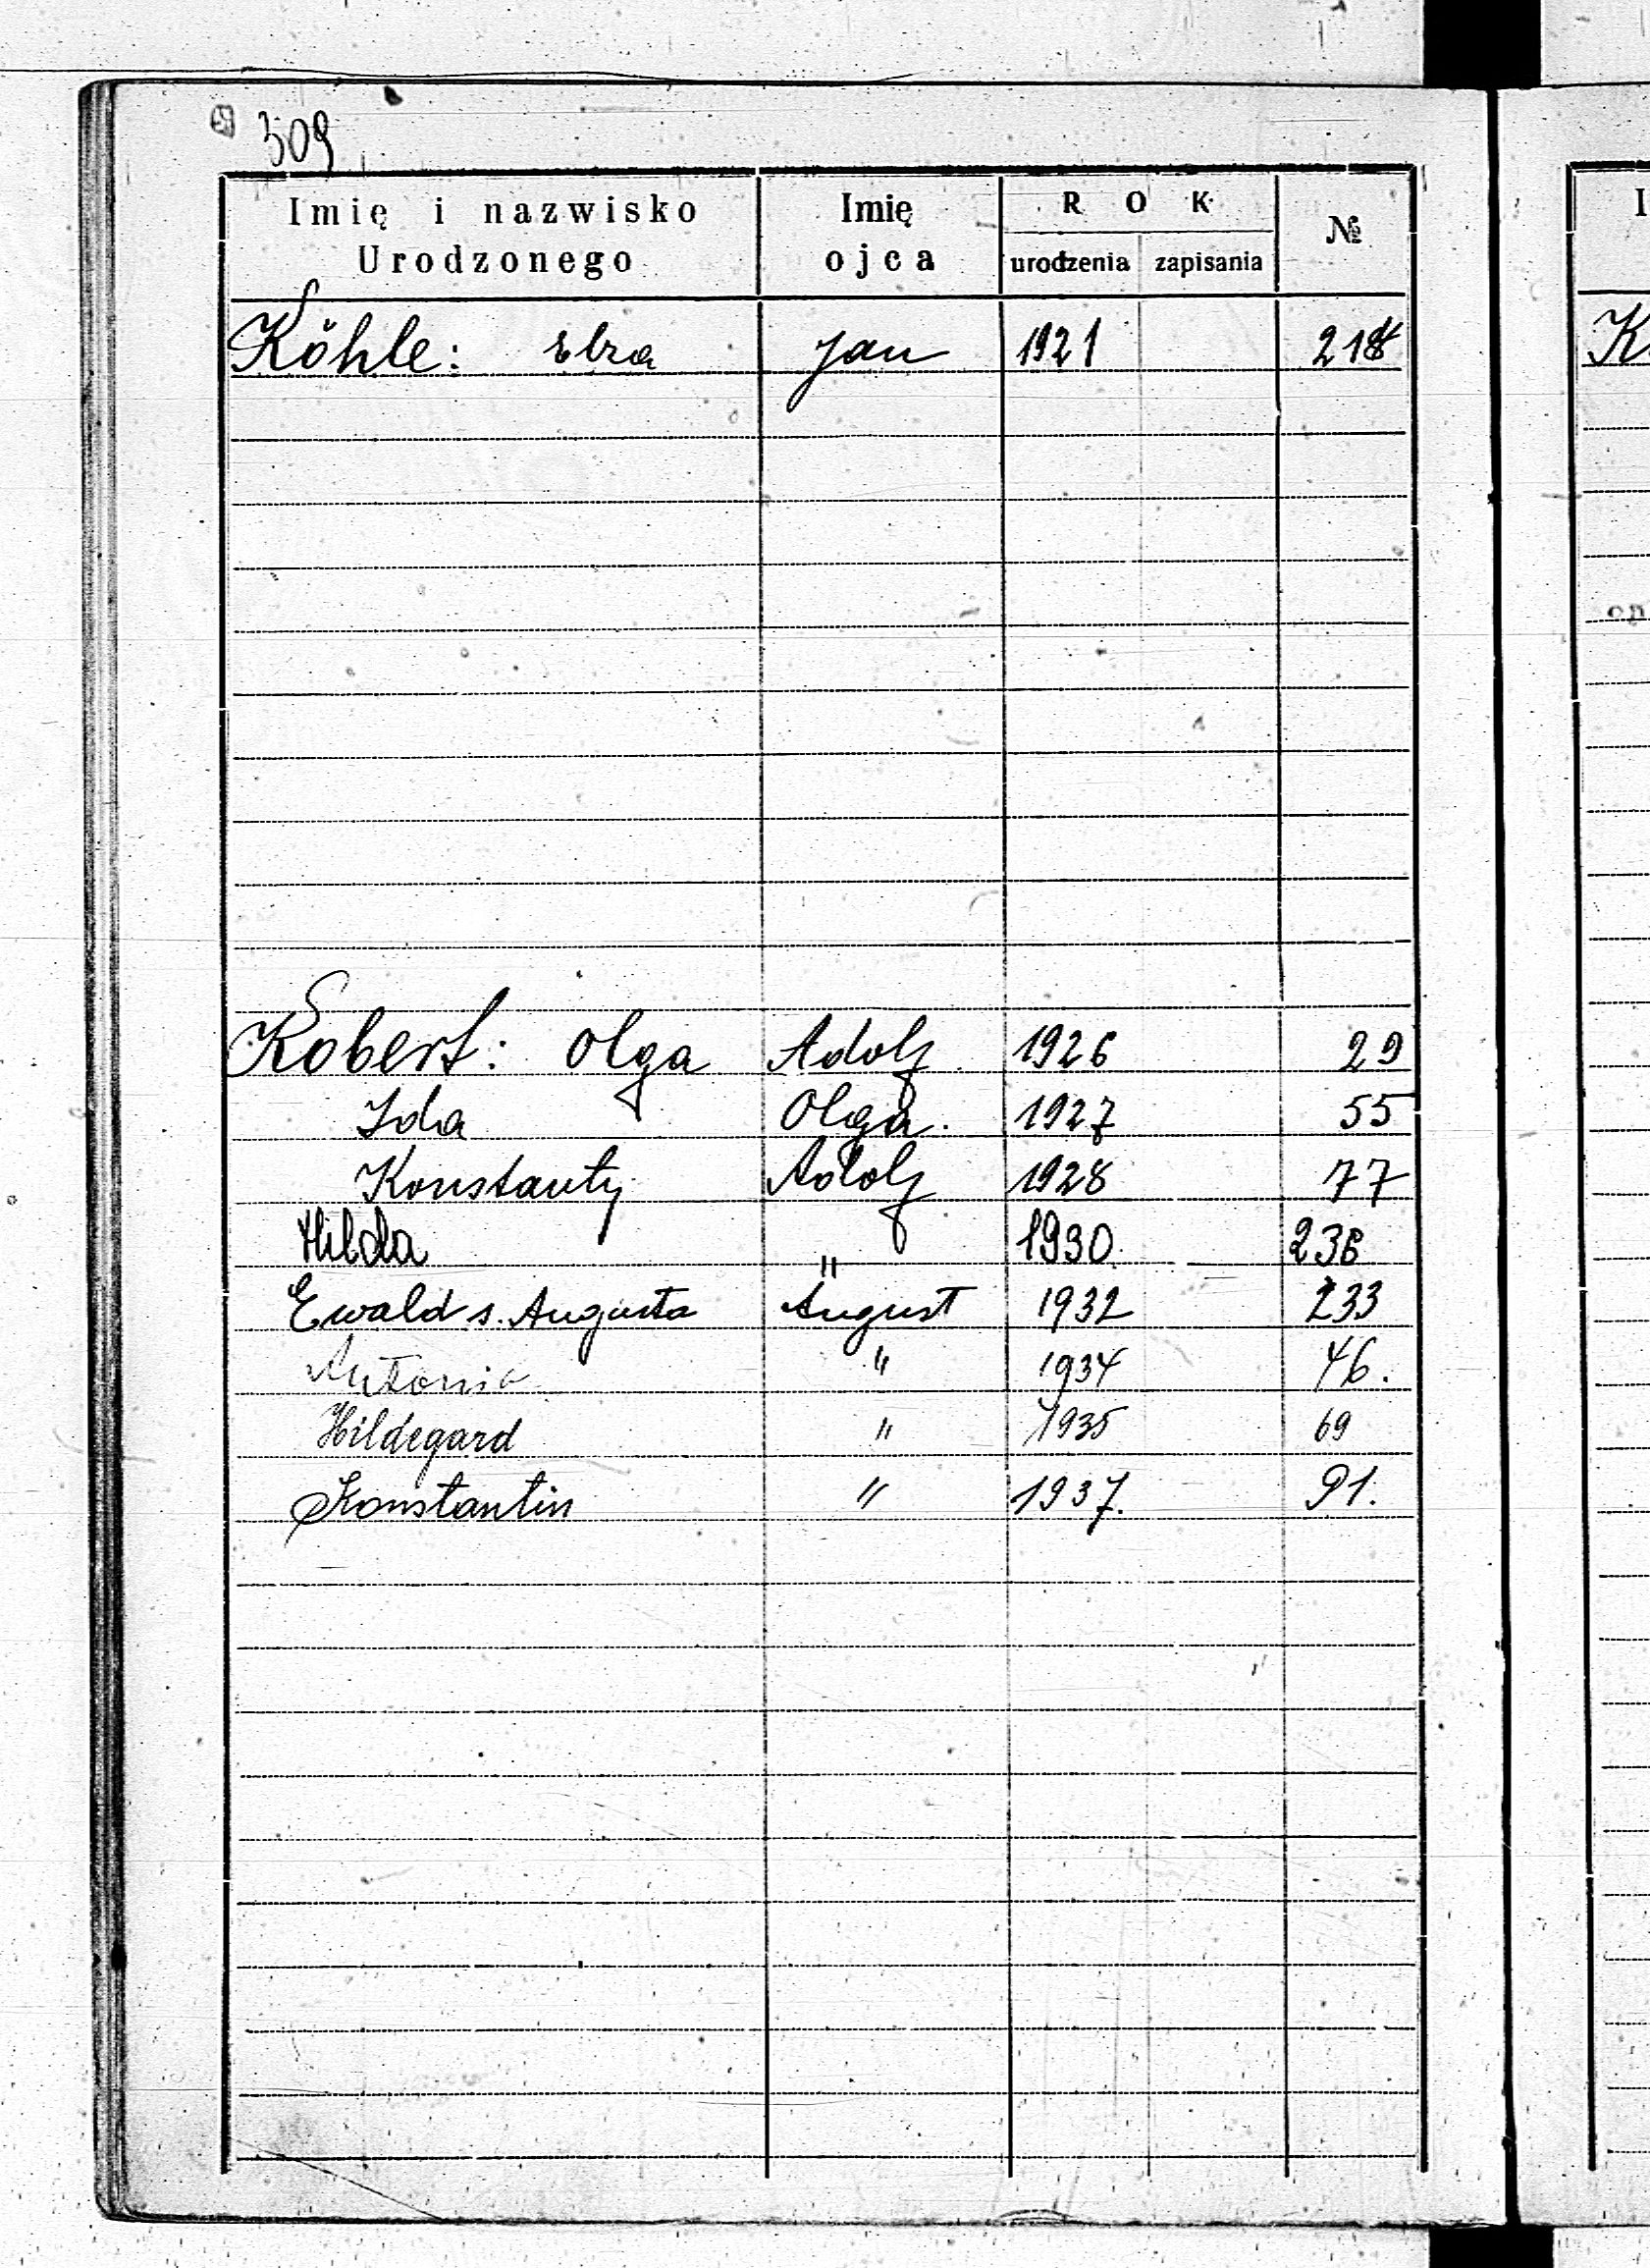 309
Imię i nazwisko Urodzonego Imię ojca ROK urodzenia zapisania №
Köhle: Jan 1921
Kobert: Olga Adolf 1926 29
Ida Olga. 1927 55
Konstanty Adolf 1928 77
Hilda " 1930. 236
Ewald s. Augusta August 1932 233
Antonia " 1934 46.
Hildegard " 1935 69
Konstantin " 1937. 91.